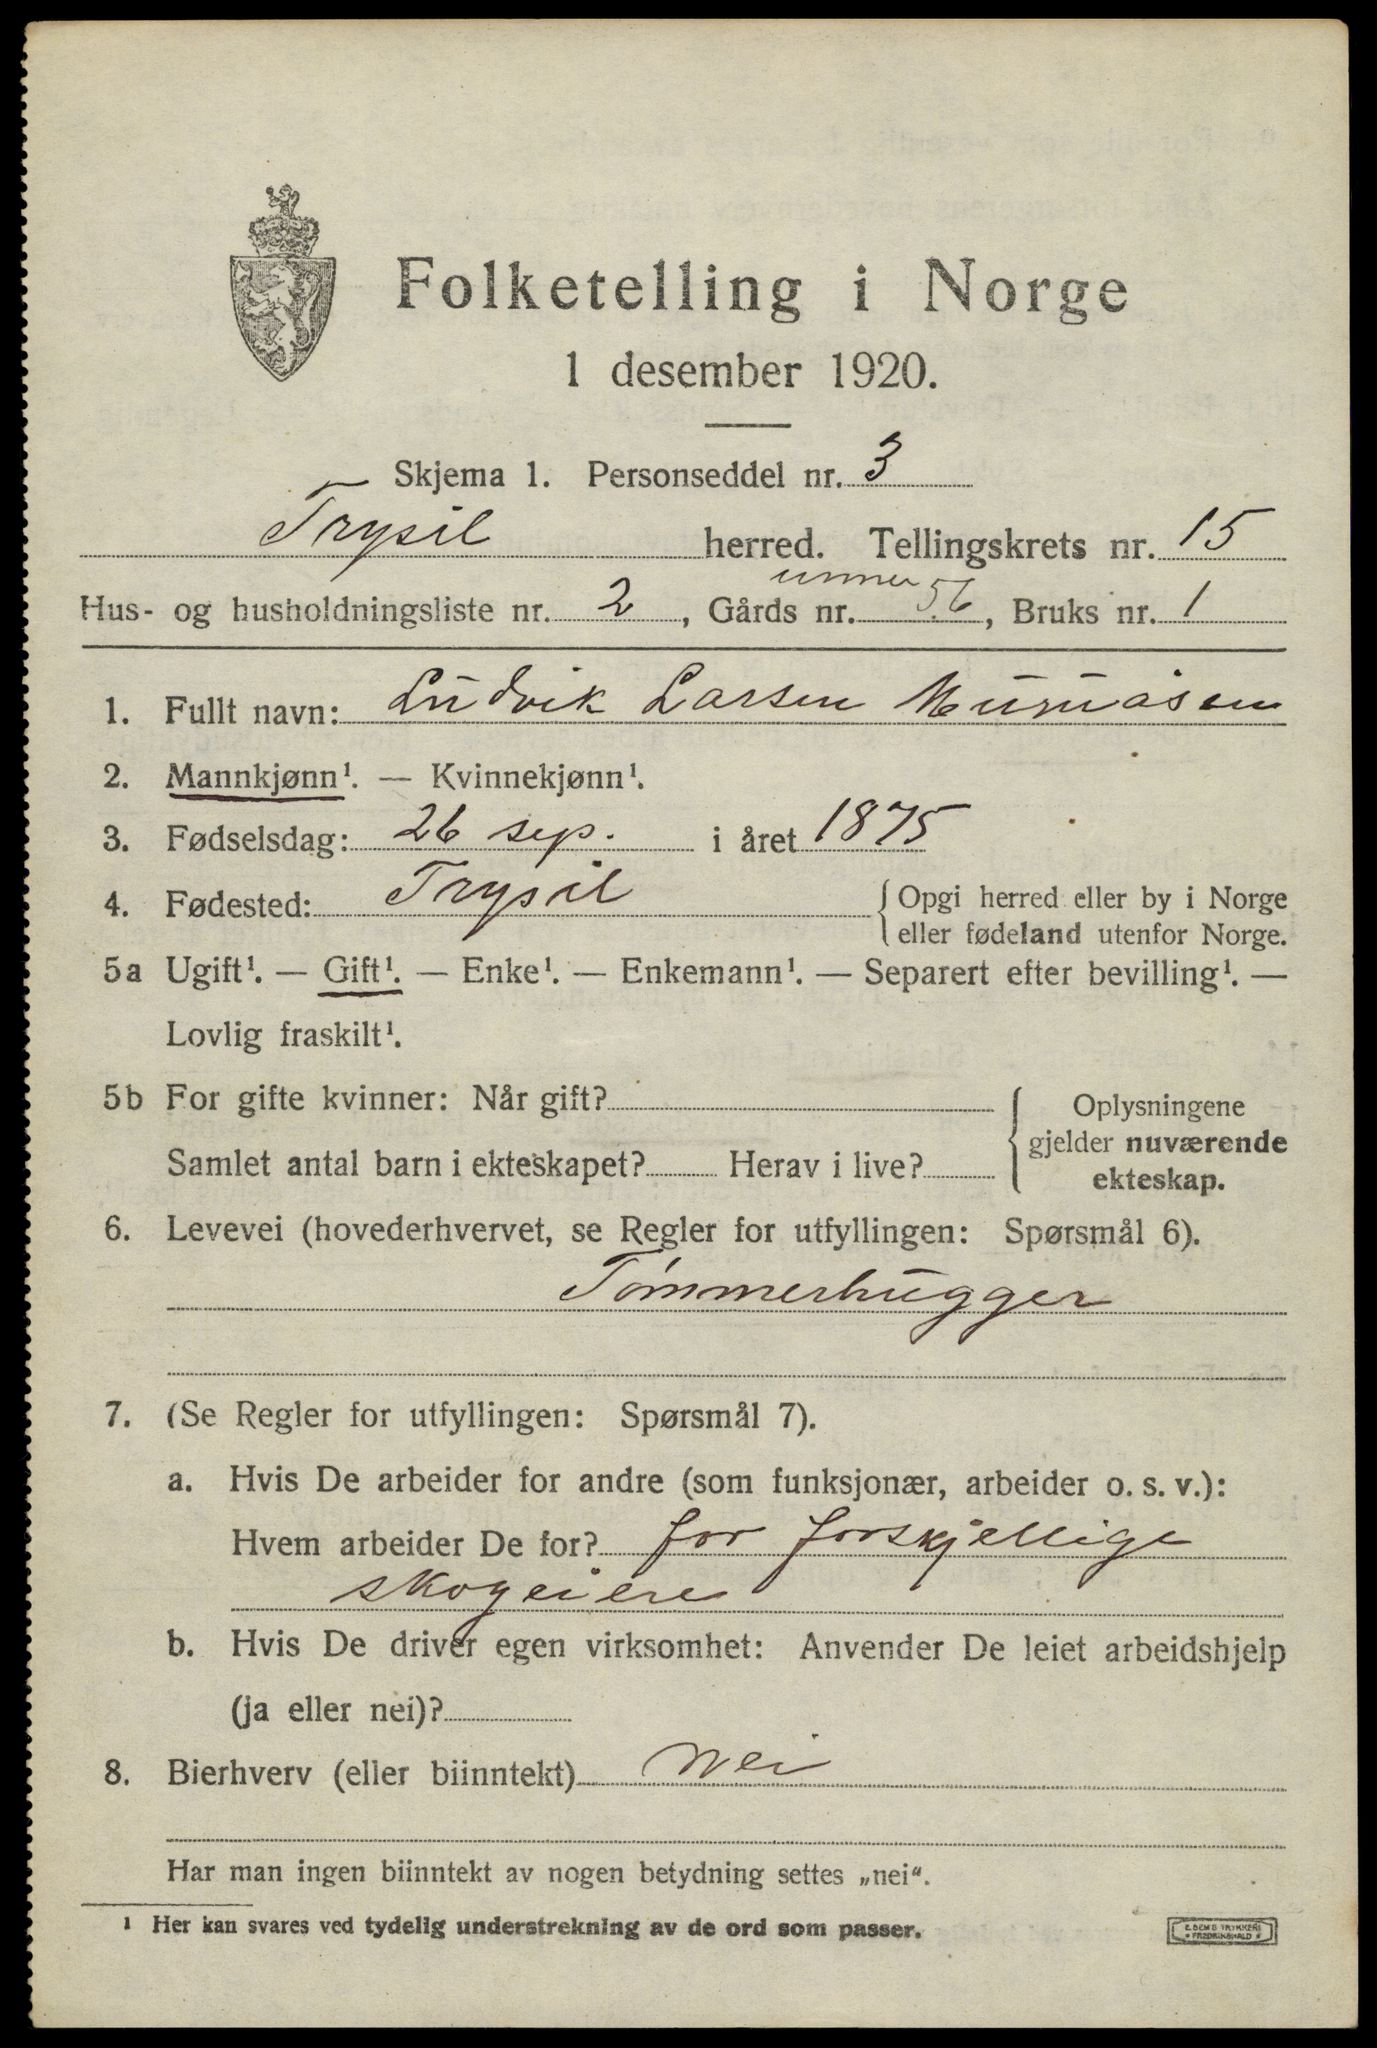 Folketelling i Norge
1 desember 1920.
Skjema 1. Personseddel nr. 3
Trysil herred. Tellingskrets nr. 15
unner
Hus- og husholdningsliste nr. 2, Gårds nr. 56, Bruks nr. 1
1. Fullt navn: Ludvik Larsen
2. Mannkjønn¹. — Kvinnekjønn¹.
3. Fødselsdag: 26 sep. i året 1875
4. Fødested: Trysil {Opgi herred eller by i Norge
eller fødeland utenfor Norge.
5a Ugift¹. — Gift¹. — Enke¹. — Enkemann¹. — Separert efter bevilling¹. —
Lovlig fraskilt¹.
5b For gifte kvinner: Når gift?
Samlet antal barn i ekteskapet? Herav i live?
Oplysningene
gjelder nuværende
ekteskap.
6. Levevei (hovederhvervet, se Regler for utfyllingen: Spørsmål 6).
Tømmerhugger
7. (Se Regler for utfyllingen: Spørsmål 7).
a. Hvis De arbeider for andre (som funksjonær, arbeider o. s. v.):
Hvem arbeider De for? for forskjellige
skogeiere
b. Hvis De driver egen virksomhet: Anvender De leiet arbeidshjelp
(ja eller nei)?
8. Bierhverv (eller biinntekt) nei
Har man ingen biinntekt av nogen betydning settes „nei“.
¹ Her kan svares ved tydelig understrekning av de ord som passer.
E. SEM'S TRYKKERI
* FREDRIKSHALD *